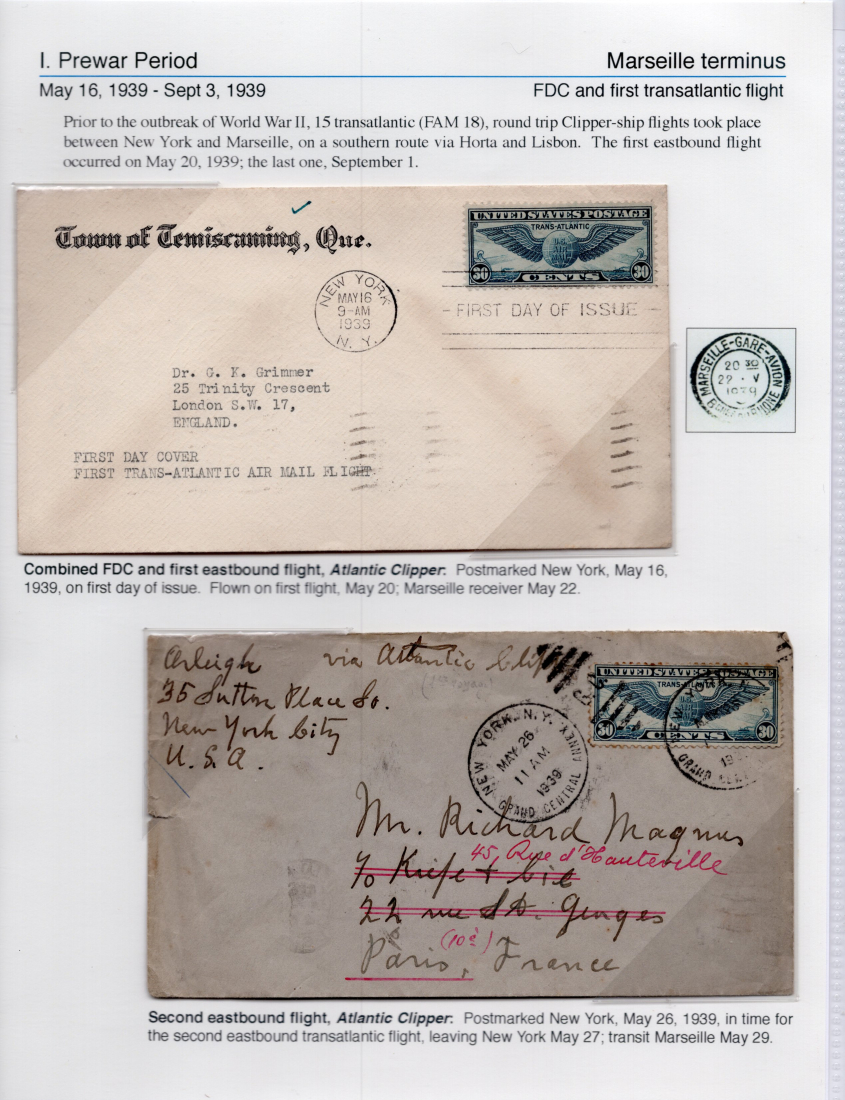 I. Prewar Period
Marseille terminus
May 16, 1939 - Sept 3, 1939
FDC and first transatlantic flight
Prior to the outbreak of World War II, 15 transatlantic (FAM 18), round trip Clipper-ship flights took place
between New York and Marseille, on a southern route via Horta and Lisbon. The first eastbound flight
occurred on May 20, 1939; the last one, September 1.
Town of Temiscaming, Que.
UNITED STATES POSTAGE
TRANS-ATLANTIC
U.S.
AIR
MAIL
30 CENTS 30
NEW YORK
MAY 16
9-AM
1939
N. Y.
FIRST DAY OF ISSUE
MARSEILLE-GARE-AVION
20 30
22 · V
1939
Dr. G. K. Grimmer
25 Trinity Crescent
London S.W. 17,
ENGLAND.
FIRST DAY COVER
FIRST TRANS-ATLANTIC AIR MAIL FLIGHT
Combined FDC and first eastbound flight, Atlantic Clipper: Postmarked New York, May 16,
1939, on first day of issue. Flown on first flight, May 20; Marseille receiver May 22.
Arleigh via Atlantic
35 Sutton Place So.
New York City
U.S.A.
UNITED STATES POSTAGE
30 CENTS 30
NEW YORK, N.Y.
MAY 26
11 AM
1939
GRAND CENTRAL ANNEX
NEW YORK
GRAND
Mr. Richard Magnus
45, Rue d'Hauteville
22 rue St. Georges
Paris, France
Second eastbound flight, Atlantic Clipper: Postmarked New York, May 26, 1939, in time for
the second eastbound transatlantic flight, leaving New York May 27; transit Marseille May 29.